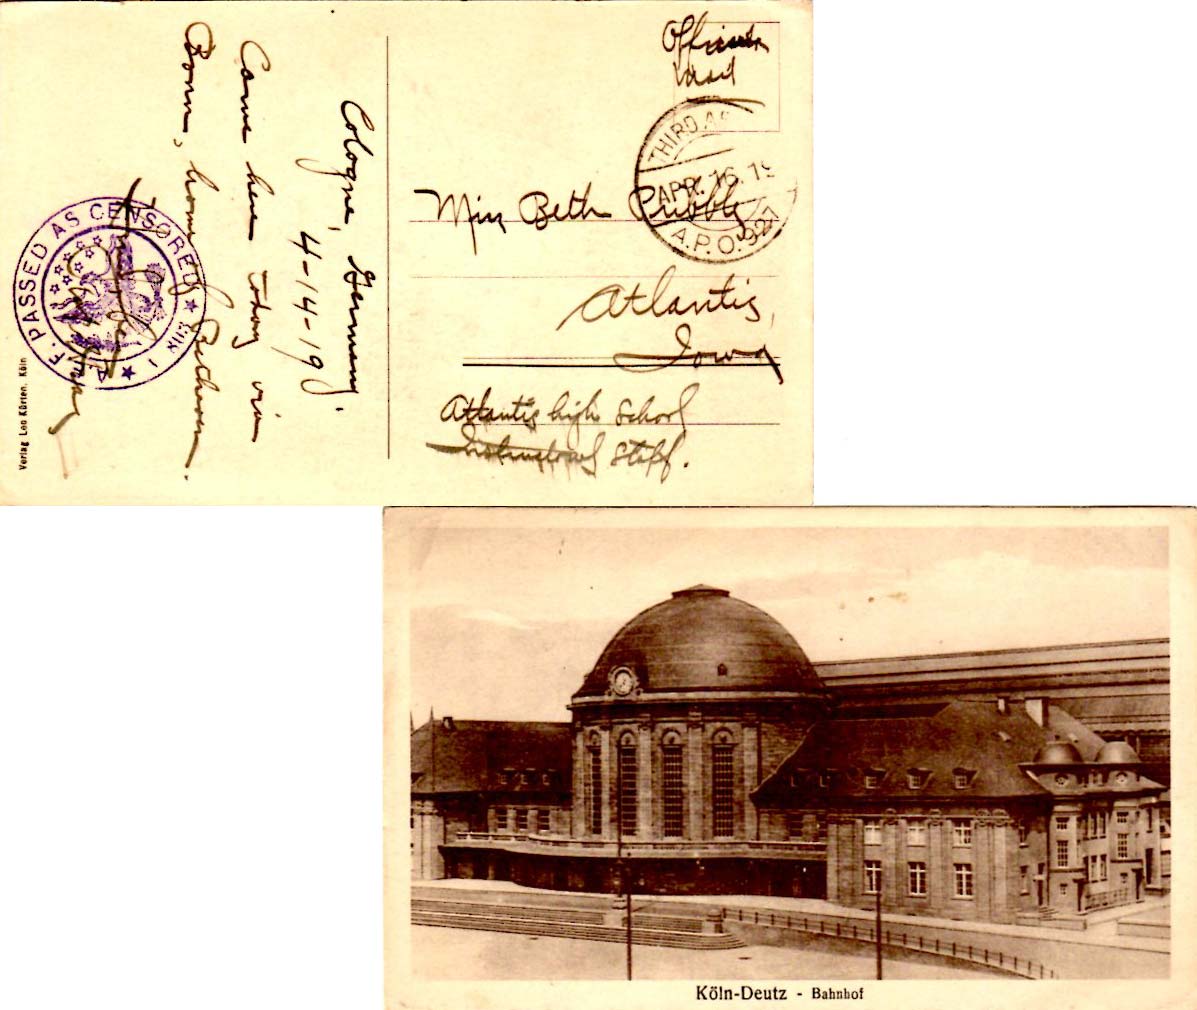 Officer's
Mail
THIRD A
APR. 16. 19
A.P.O. 927
Miss Beth Pribble,
Atlantic,
Iowa
Atlantic high School
Instructional Staff.
Cologne, Germany.
4-14-19
Came here today via
Bonn, home Bethoven.
A. E. F. PASSED AS CENSORED
Verlag Leo Kürten, Köln
Köln-Deutz - Bahnhof